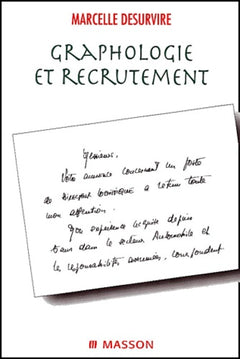 MARCELLE DESURVIRE
GRAPHOLOGIE
ET RECRUTEMENT
Messieurs,
Votre annonce concernant un poste
de DIRECTEUR LOGISTIQUE a retenu toute
mon attention.
Mon expérience acquise depuis
8 ans dans le secteur Automobile et
les responsabilités assumées, correspondent
MASSON